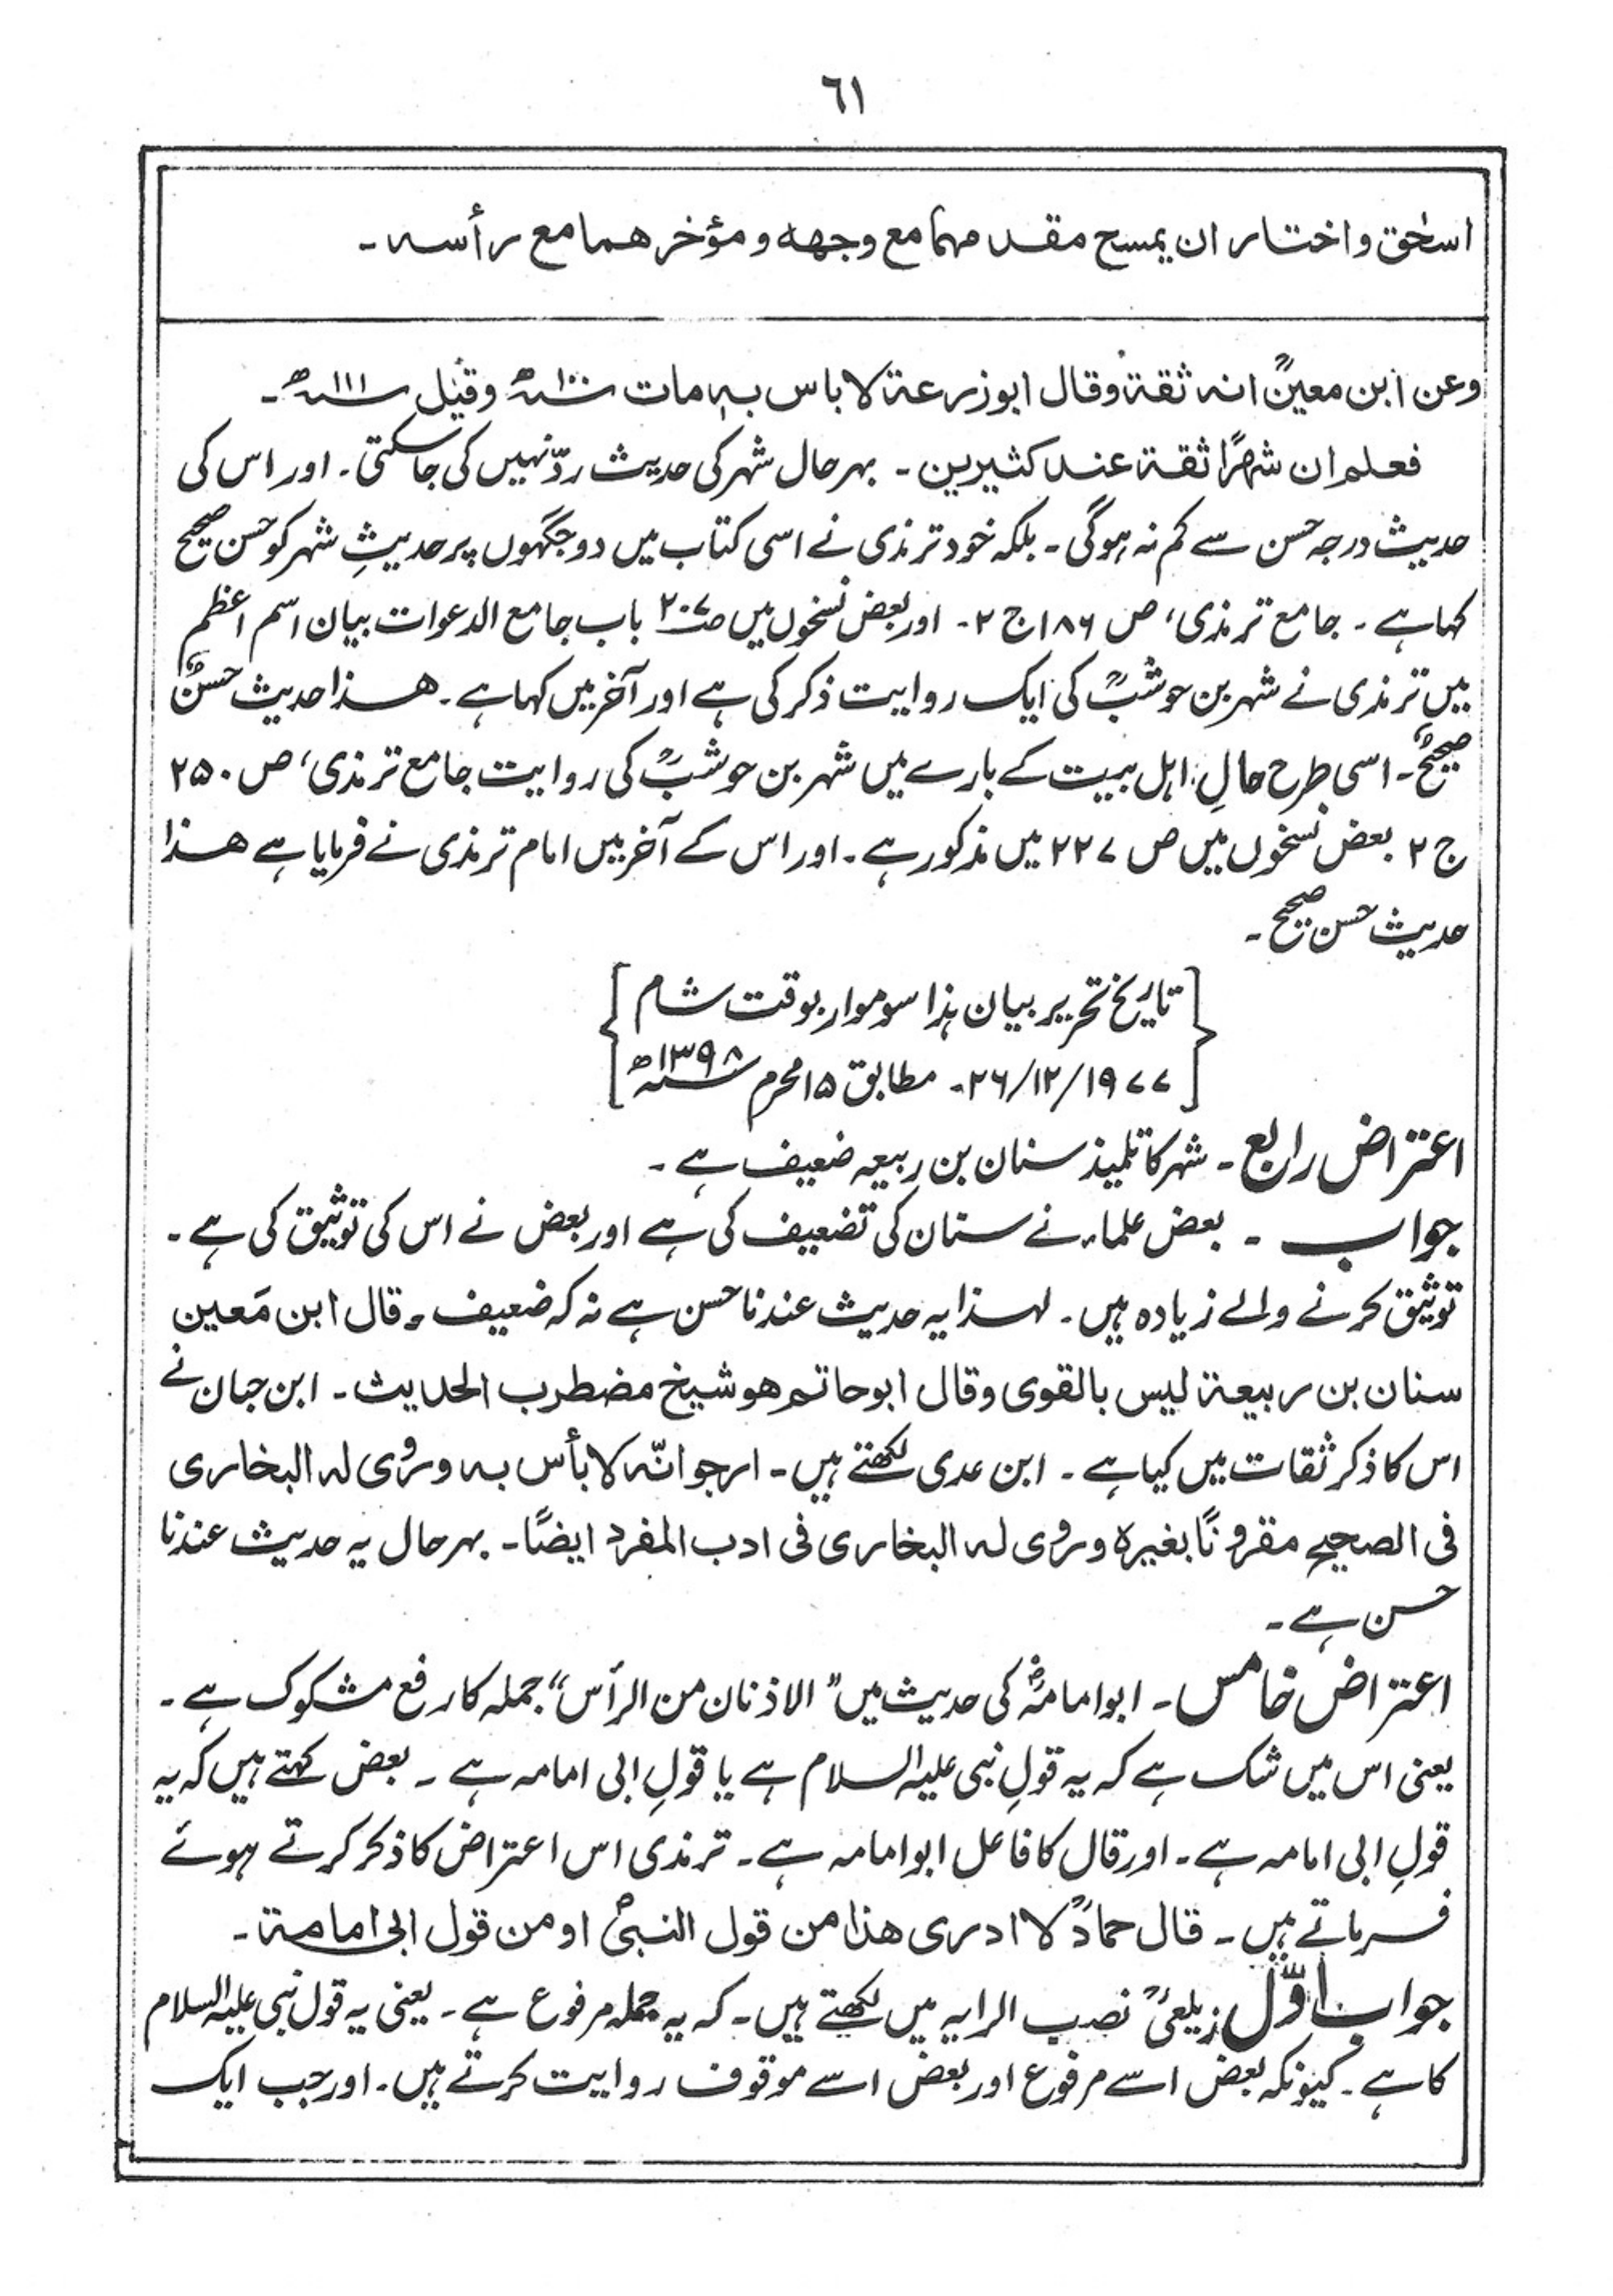 ٦١
اسحٰق واختار ان يمسح مقدمهما مع وجهه ومؤخرهما مع رأسه۔
وعن ابن معینؒ انہ ثقۃ وقال ابوزرعۃ لا باس بہ مات سنہ ۱۰۰ھ وقیل سنہ ۱۱۱ھ۔
فعلم ان شھرًا ثقۃ عند کثیرین۔ بہرحال شہر کی حدیث ردّ نہیں کی جاسکتی۔ اور اس کی
حدیث درجہ حسن سے کم نہ ہوگی۔ بلکہ خود ترمذی نے اسی کتاب میں دو جگہوں پر حدیثِ شہر کو حسن صحیح
کہا ہے۔ جامع ترمذی، ص ۱۸۶ ج ۲۔ اور بعض نسخوں میں ص ۲۰۷ باب جامع الدعوات بیان اسم اعظم
میں ترمذی نے شہر بن حوشبؒ کی ایک روایت ذکر کی ہے اور آخر میں کہا ہے۔ ھذا حدیث حسنٌ
صحیحٌ۔ اسی طرح حالِ اہل بیت کے بارے میں شہر بن حوشبؒ کی روایت جامع ترمذی، ص ۲۵۰
ج ۲ بعض نسخوں میں ص ۲۲۷ میں مذکور ہے۔ اور اس کے آخر میں امام ترمذی نے فرمایا ہے ھذا
حدیث حسن صحیح۔
{تاریخ تحریر بیان ہذا سوموار بوقت شام}
{۲۶/۱۲/۱۹۷۷۔ مطابق ۱۵ محرم سنہ ۱۳۹۸ھ}
اعتراض رابع۔ شہر کا تلمیذ سنان بن ربیعہ ضعیف ہے۔
جواب۔ بعض علماء نے سنان کی تضعیف کی ہے اور بعض نے اس کی توثیق کی ہے۔
توثیق کرنے والے زیادہ ہیں۔ لہذا یہ حدیث عندنا حسن ہے نہ کہ ضعیف۔ قال ابن مَعین
سنان بن ربیعۃ لیس بالقوی وقال ابوحاتم ھو شیخ مضطرب الحدیث۔ ابن حبان نے
اس کا ذکر ثقات میں کیا ہے۔ ابن عدی لکھتے ہیں۔ ارجو انّہ لا بأس بہ وروٰی لہ البخاری
فی الصحیح مقرونًا بغیرہ وروٰی لہ البخاری فی ادب المفرد ایضًا۔ بہرحال یہ حدیث عندنا
حسن ہے۔
اعتراض خامس۔ ابوامامہؓ کی حدیث میں "الاذنان من الرأس" جملہ کا رفع مشکوک ہے۔
یعنی اس میں شک ہے کہ یہ قولِ نبی علیہ السلام ہے یا قولِ ابی امامہ ہے۔ بعض کہتے ہیں کہ یہ
قولِ ابی امامہ ہے۔ اور قال کا فاعل ابوامامہ ہے۔ ترمذی اس اعتراض کا ذکر کرتے ہوئے
فرماتے ہیں۔ قال حمادؒ لا ادری ھذا من قول النبیؐ او من قول ابی امامۃ۔
جواب اوّل زیلعیؒ نصب الرایہ میں لکھتے ہیں۔ کہ یہ جملہ مرفوع ہے۔ یعنی یہ قول نبی علیہ السلام
کا ہے۔ کیونکہ بعض اسے مرفوع اور بعض اسے موقوف روایت کرتے ہیں۔ اور جب ایک